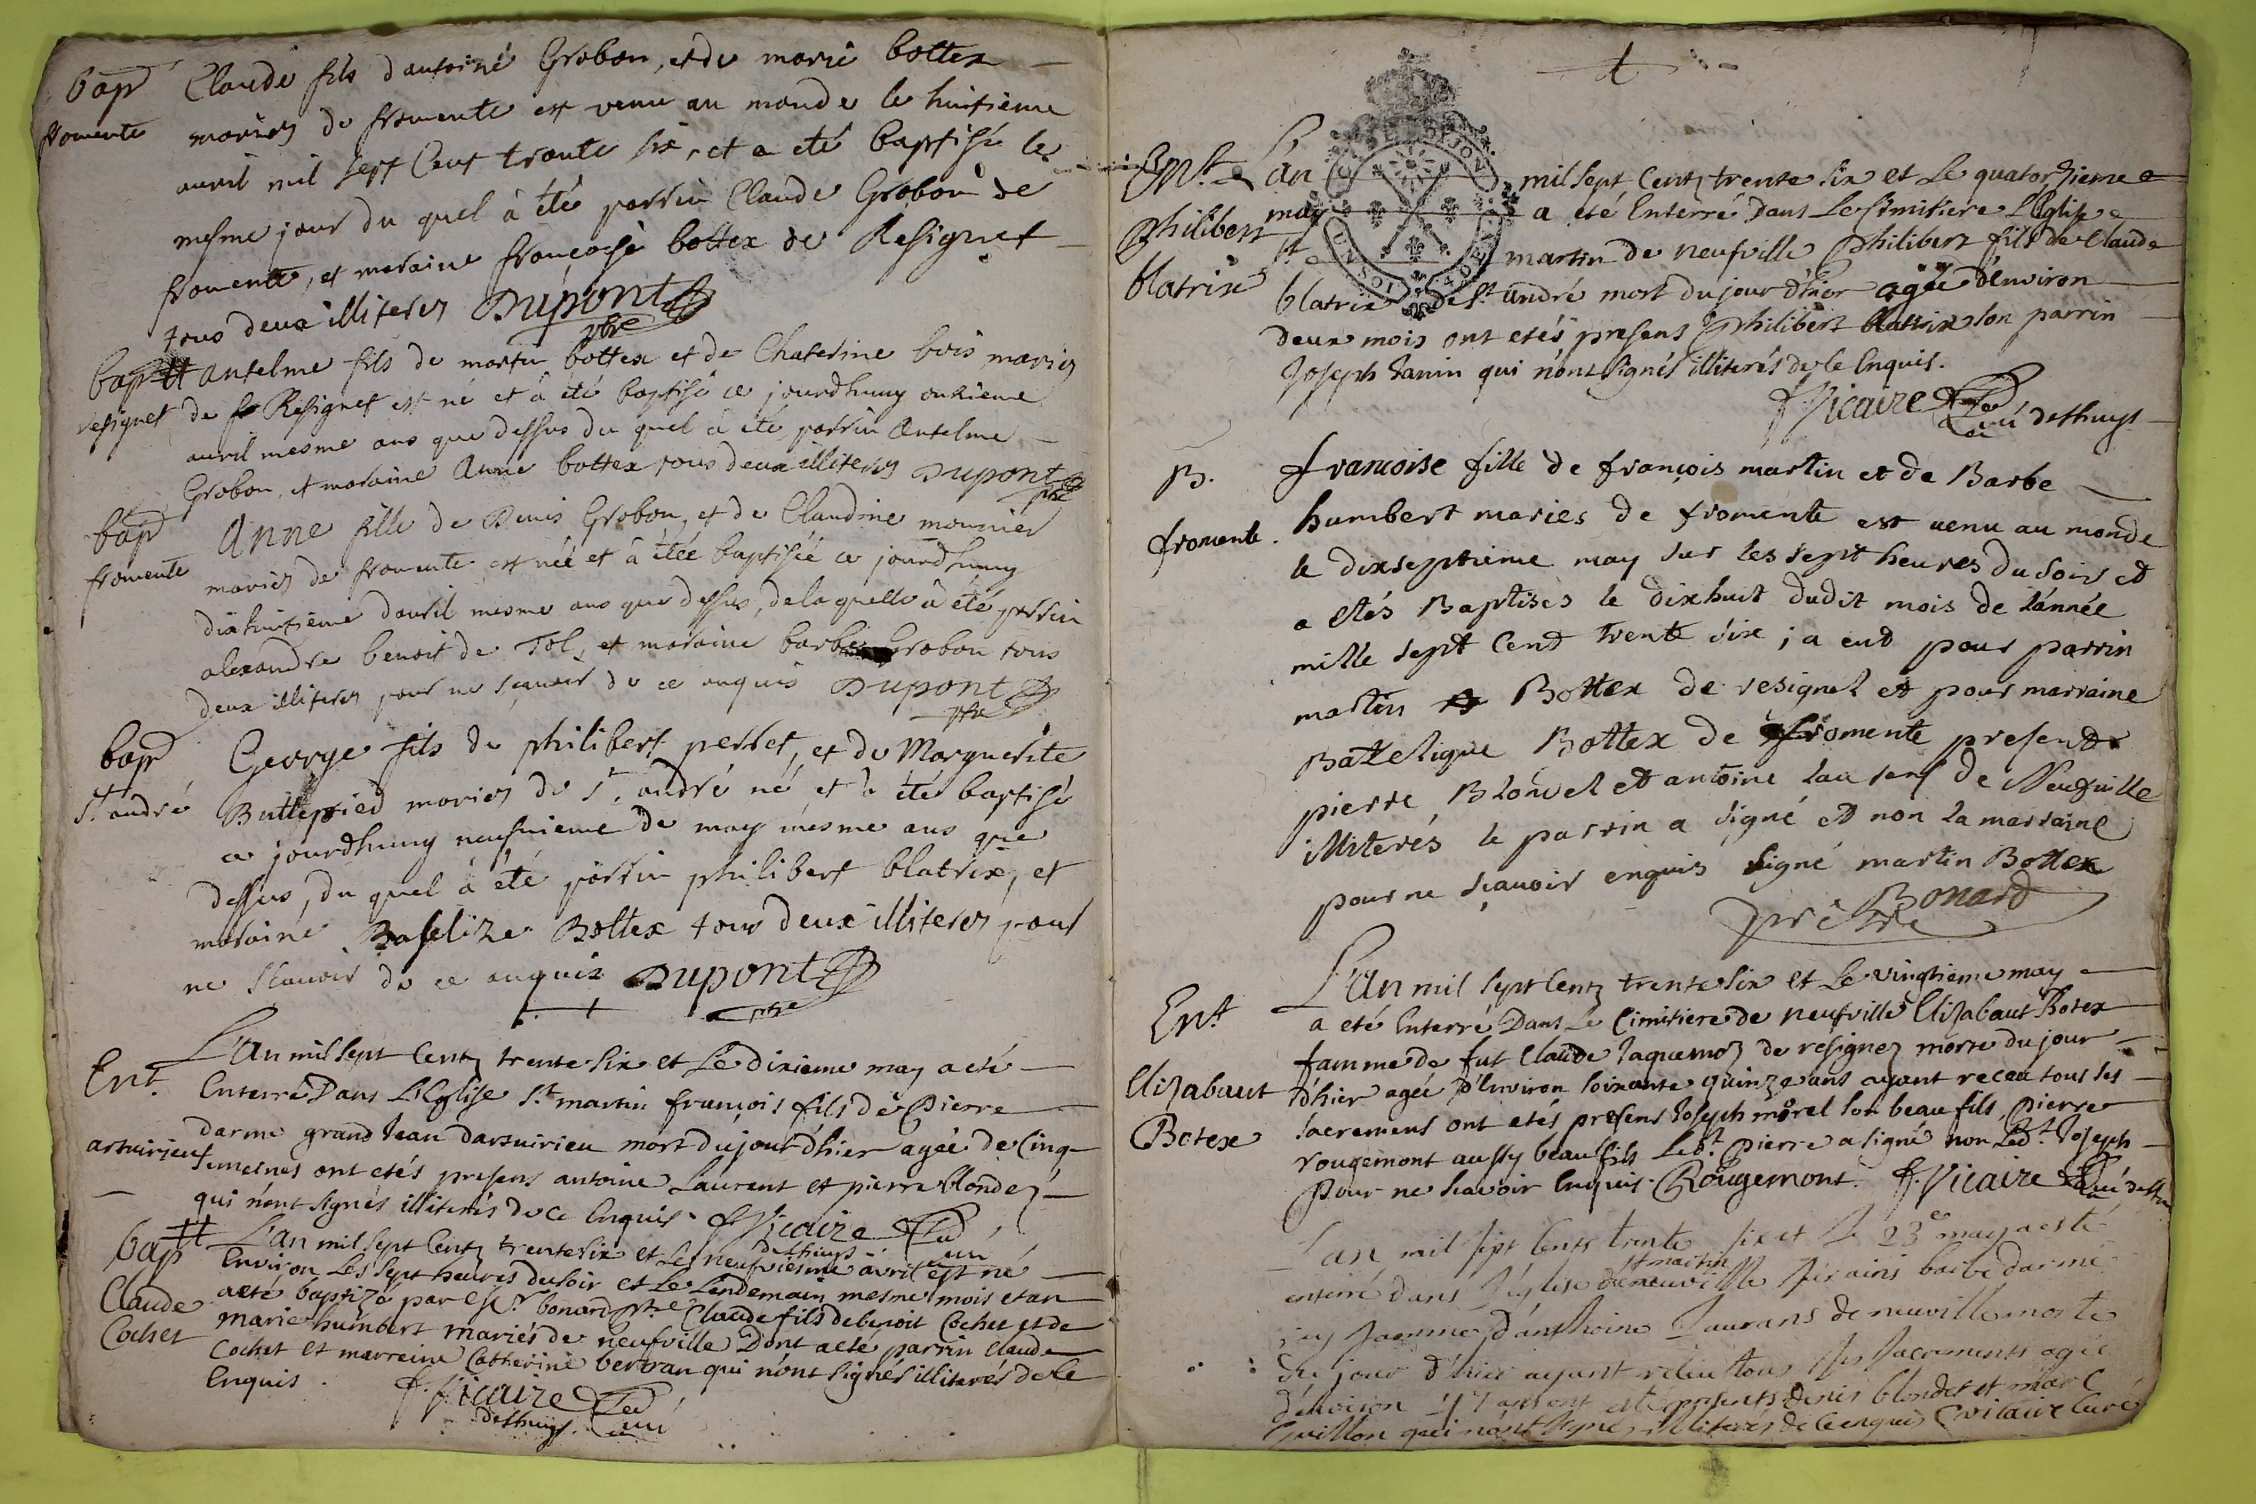 bap Claude fils dantoine Grobon, et de marie bottex
fromente mariez de fromente est venu au monde le huitieme
avril mil sept Cent trente six, et a été baptisé le
mesme jour du quel à été parrin Claude Grobon de
fromente, et maraine françoise bottex de Resignet
tous deux illiteres Dupont
ptre
bap tt anselme fils de martin bottex et de Chaterine bois mariez
resignet de Resignet est né et à été baptisé ce jourdhuy onzieme
avril mesme ans que dessus du quel à été parrin Anselme
Grobon, et maraine Anne bottex tous deux illiteres Dupont
ptre
bap Anne fille de Denis Grobon, et de Claudine mounier
fromente mariez de fromente est née et à étée baptisée ce jourdhuy
dixhuitieme davril mesme ans que dessus, de laquelle à été parrin
alexandre benoit de Tol, et maraine barbe Grobon tous
deux illiteres pour ne sçavoir de ce enquis Dupont
ptre
bap George fils de philibert perret, et de Marguerite
St. andré Buttepied mariez de St. andré né et à été baptisé
ce jourdhuy neufvieme de may mesme ans que
dessus, du quel à été parrin philibert blatrix, et
maraine Baselize Bottex tous deux illiteres pour
ne scavoir de ce enquis Dupont
ptre
L'an mil sept Centz trente six et Le dixieme may a eté
Ent. Enterré Dans L'Eglise St. martin françois fils de Pierre
darme grand Jean darsuirieu mort du jour d'hier agée de Cinq
arsuirieu semaines ont etés presens antoine Laurent et pierre blondez
qui n'ont signés illiterés de ce Enquis. Vicaire
curé deshuys
bap tt L'an mil sept Centz trente six et le neufviesme avril est né
Environ Les sept heures du soir et Le Lendemain mesme mois et an
Claude a eté baptizé par Esr. bonard ptre Claude fils de benoit Cochet et de
Cochet marie humbert mariés de neufville Dont a eté parrin Claude
Cochet et marreine Catherine bertran qui n'ont signés illiterés de Ce
Enquis. Vicaire
deshuys. curé
Ent. L'an mil sept Centz trente six et Le quatorzieme
Philibert may a eté Enterré Dans Le Cimitiere L'Eglise
St. martin de neufville Philibert fils de Claude
blatrix blatrix de St. andré mort du jour d'hier agée d'environ
deux mois ont etés presens Philibert blatrix son parrin
Joseph Janin qui n'ont signés illiterés de Ce Enquis.
Vicaire
curé deshuys
B. francoise fille de françois martin et de Barbe
fromente. humbert mariés de fromente est venu au monde
le dixseptieme may sur les sept heures du soir et
a etés Baptises le dixhuit dudit mois de l'année
mille sept Cent trente six; a eut pour parrin
martin Bottex de resignet et pour marraine
Batzelique Bottex de fromente present
pierre Blondel et antoine Laurent de Neufville
illiterés le parrin a signé et non la marraine
pour ne sçavoir enquis signé martin Bottex
Bonard
prêtre
L'an mil sept Centz trente six et Le vingtieme may
Ent. a eté Enterré Dans Le Cimitiere de neufville Elizabaut Botex
famme de fut Claude Jaquemoz de resignez morte du jour
Elizabaut d'hier agée D'Environ soixante quinze ans ayant receu tous ses
Botex sacremens ont etés presens Joseph morel son beau fils, Pierre
rougemont aussy beau fils Ledt. Pierre a signé non Ledt. Joseph
pour ne scavoir Enquis. Rougemont. Vicaire curé
L'an mil sept cents trente six et le 23e may a esté
enterré dans l'église St martin de neuville barbe darme
famme d'anthoine Laurans de neuville morte
du jour d'hier ayant receu tous ses sacrements agée
d'environ ans ont esté presents denis blondet et marc
Guillon qui n'ont signé illiterés de ce enquis vicaire Curé